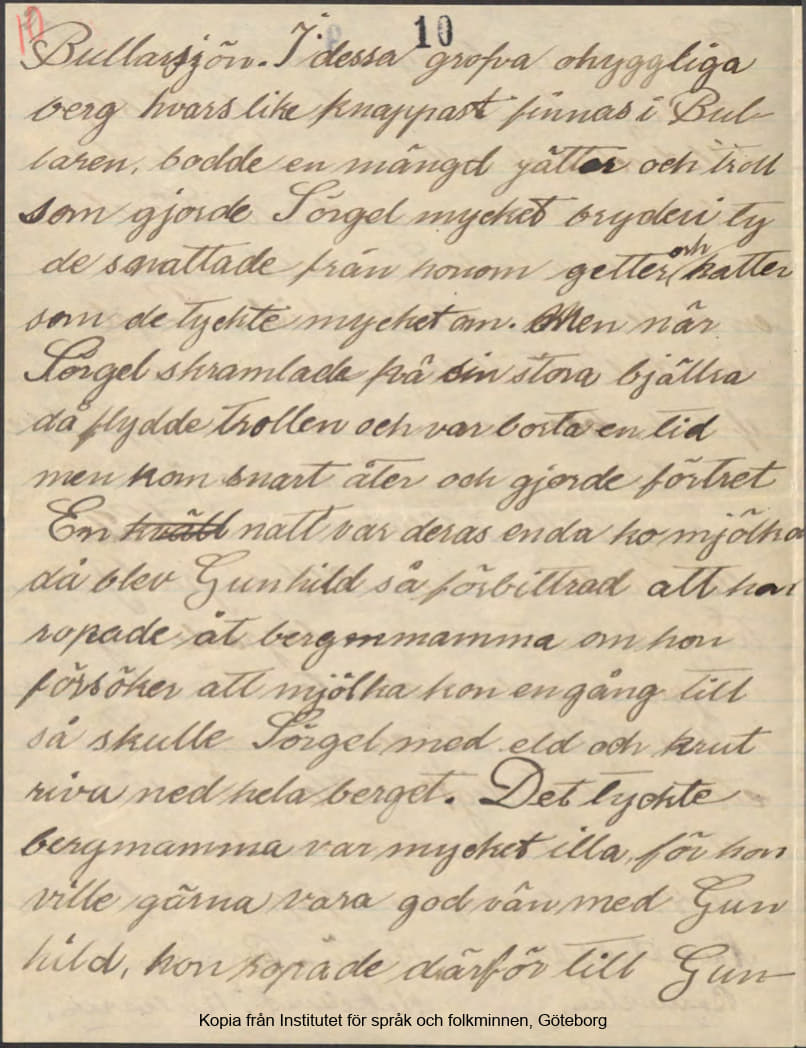 10
10
Bullarsjön. I dessa grofva ohyggliga
berg hvars like knappast finnas i Bul-
laren, bodde en mängd jätter och troll
som gjorde Sörgel mycket bryderi ty
de snattade från honom getter och katter
som de tyckte mycket om. Men när
Sörgel skramlade på sin stora bjällra
då flydde trollen och var borta en tid
men kom snart åter och gjorde förtret
En kväll natt var deras enda ko mjölka
då blev Gunhild så förbittrad att hon
ropade åt bergmamma om hon
försöker att mjölka kon engång till
så skulle Sörgel med eld och krut
riva ned hela berget. Det tyckte
bergmamma var mycket illa, för hon
ville gärna vara god vän med Gun
hild, hon ropade därför till Gun-
Kopia från Institutet för språk och folkminnen, Göteborg